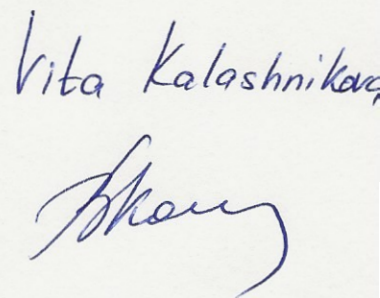 Vita Kalashnikova